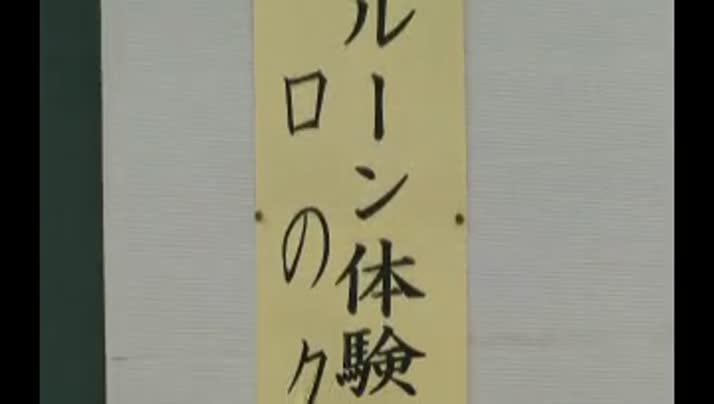 ルーン体験
ロのク